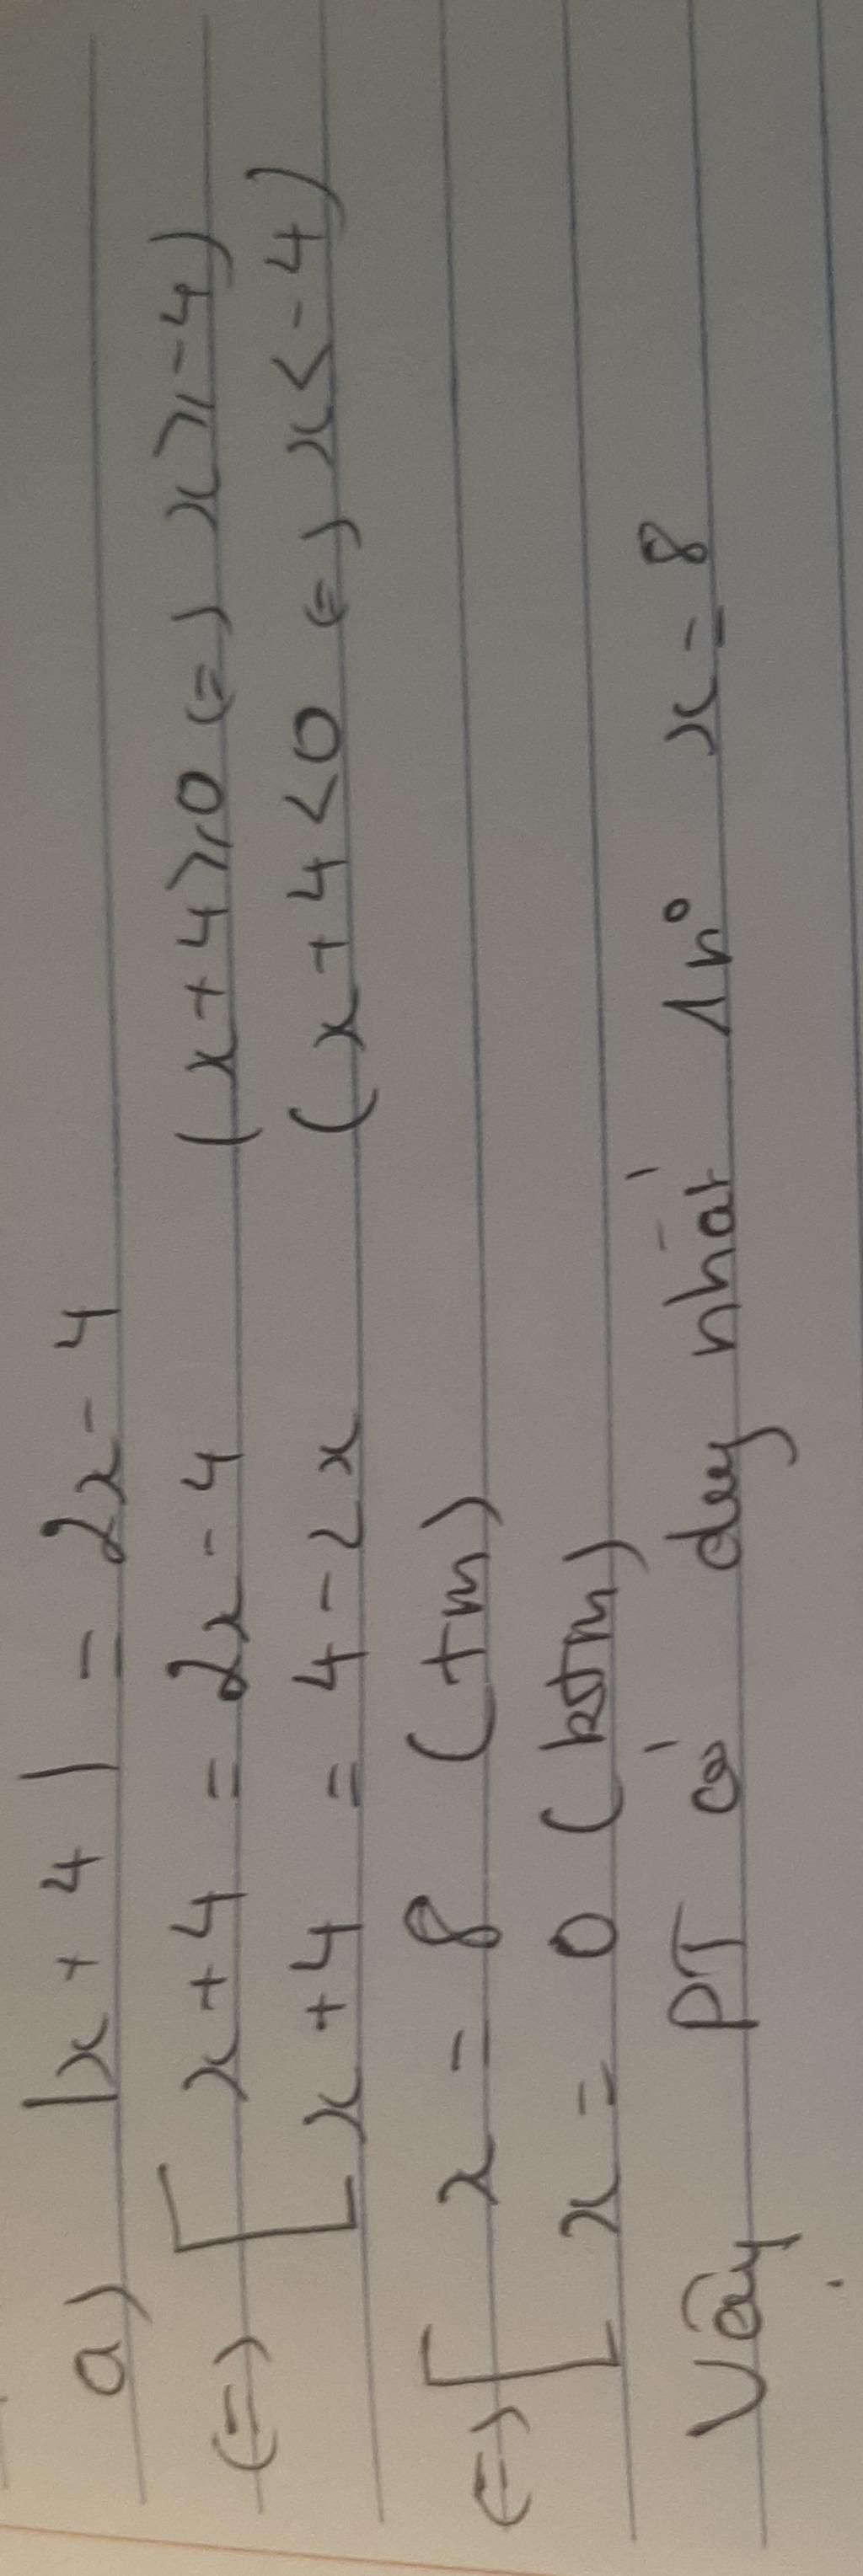 a) |x + 4| = 2x - 4
(=) [ x + 4 = 2x - 4 (x + 4 ⩾ 0 (=) x ⩾ -4)
[ x + 4 = 4 - 2x (x + 4 < 0 (=) x < -4)
(=) [ x = 8 (tm)
[ x = 0 (ktm)
Vậy PT có duy nhất 1 n° x = 8